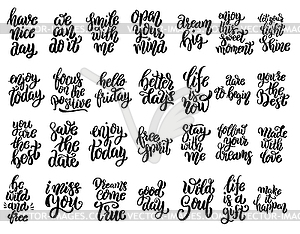 have nice day
we can do it
smile with me
open your mind
dream big
enjoy this sweet moment
let your light shine
enjoy today
focus on the positive
hello friday
better days
life you
dare to begin
you're the best
you are the best
save the date
enjoy today
free spirit
stay with me
follow your dreams
made with love
be wild and free
i miss you
Dreams come true
good day
wild soul
life is a gift
make it happen